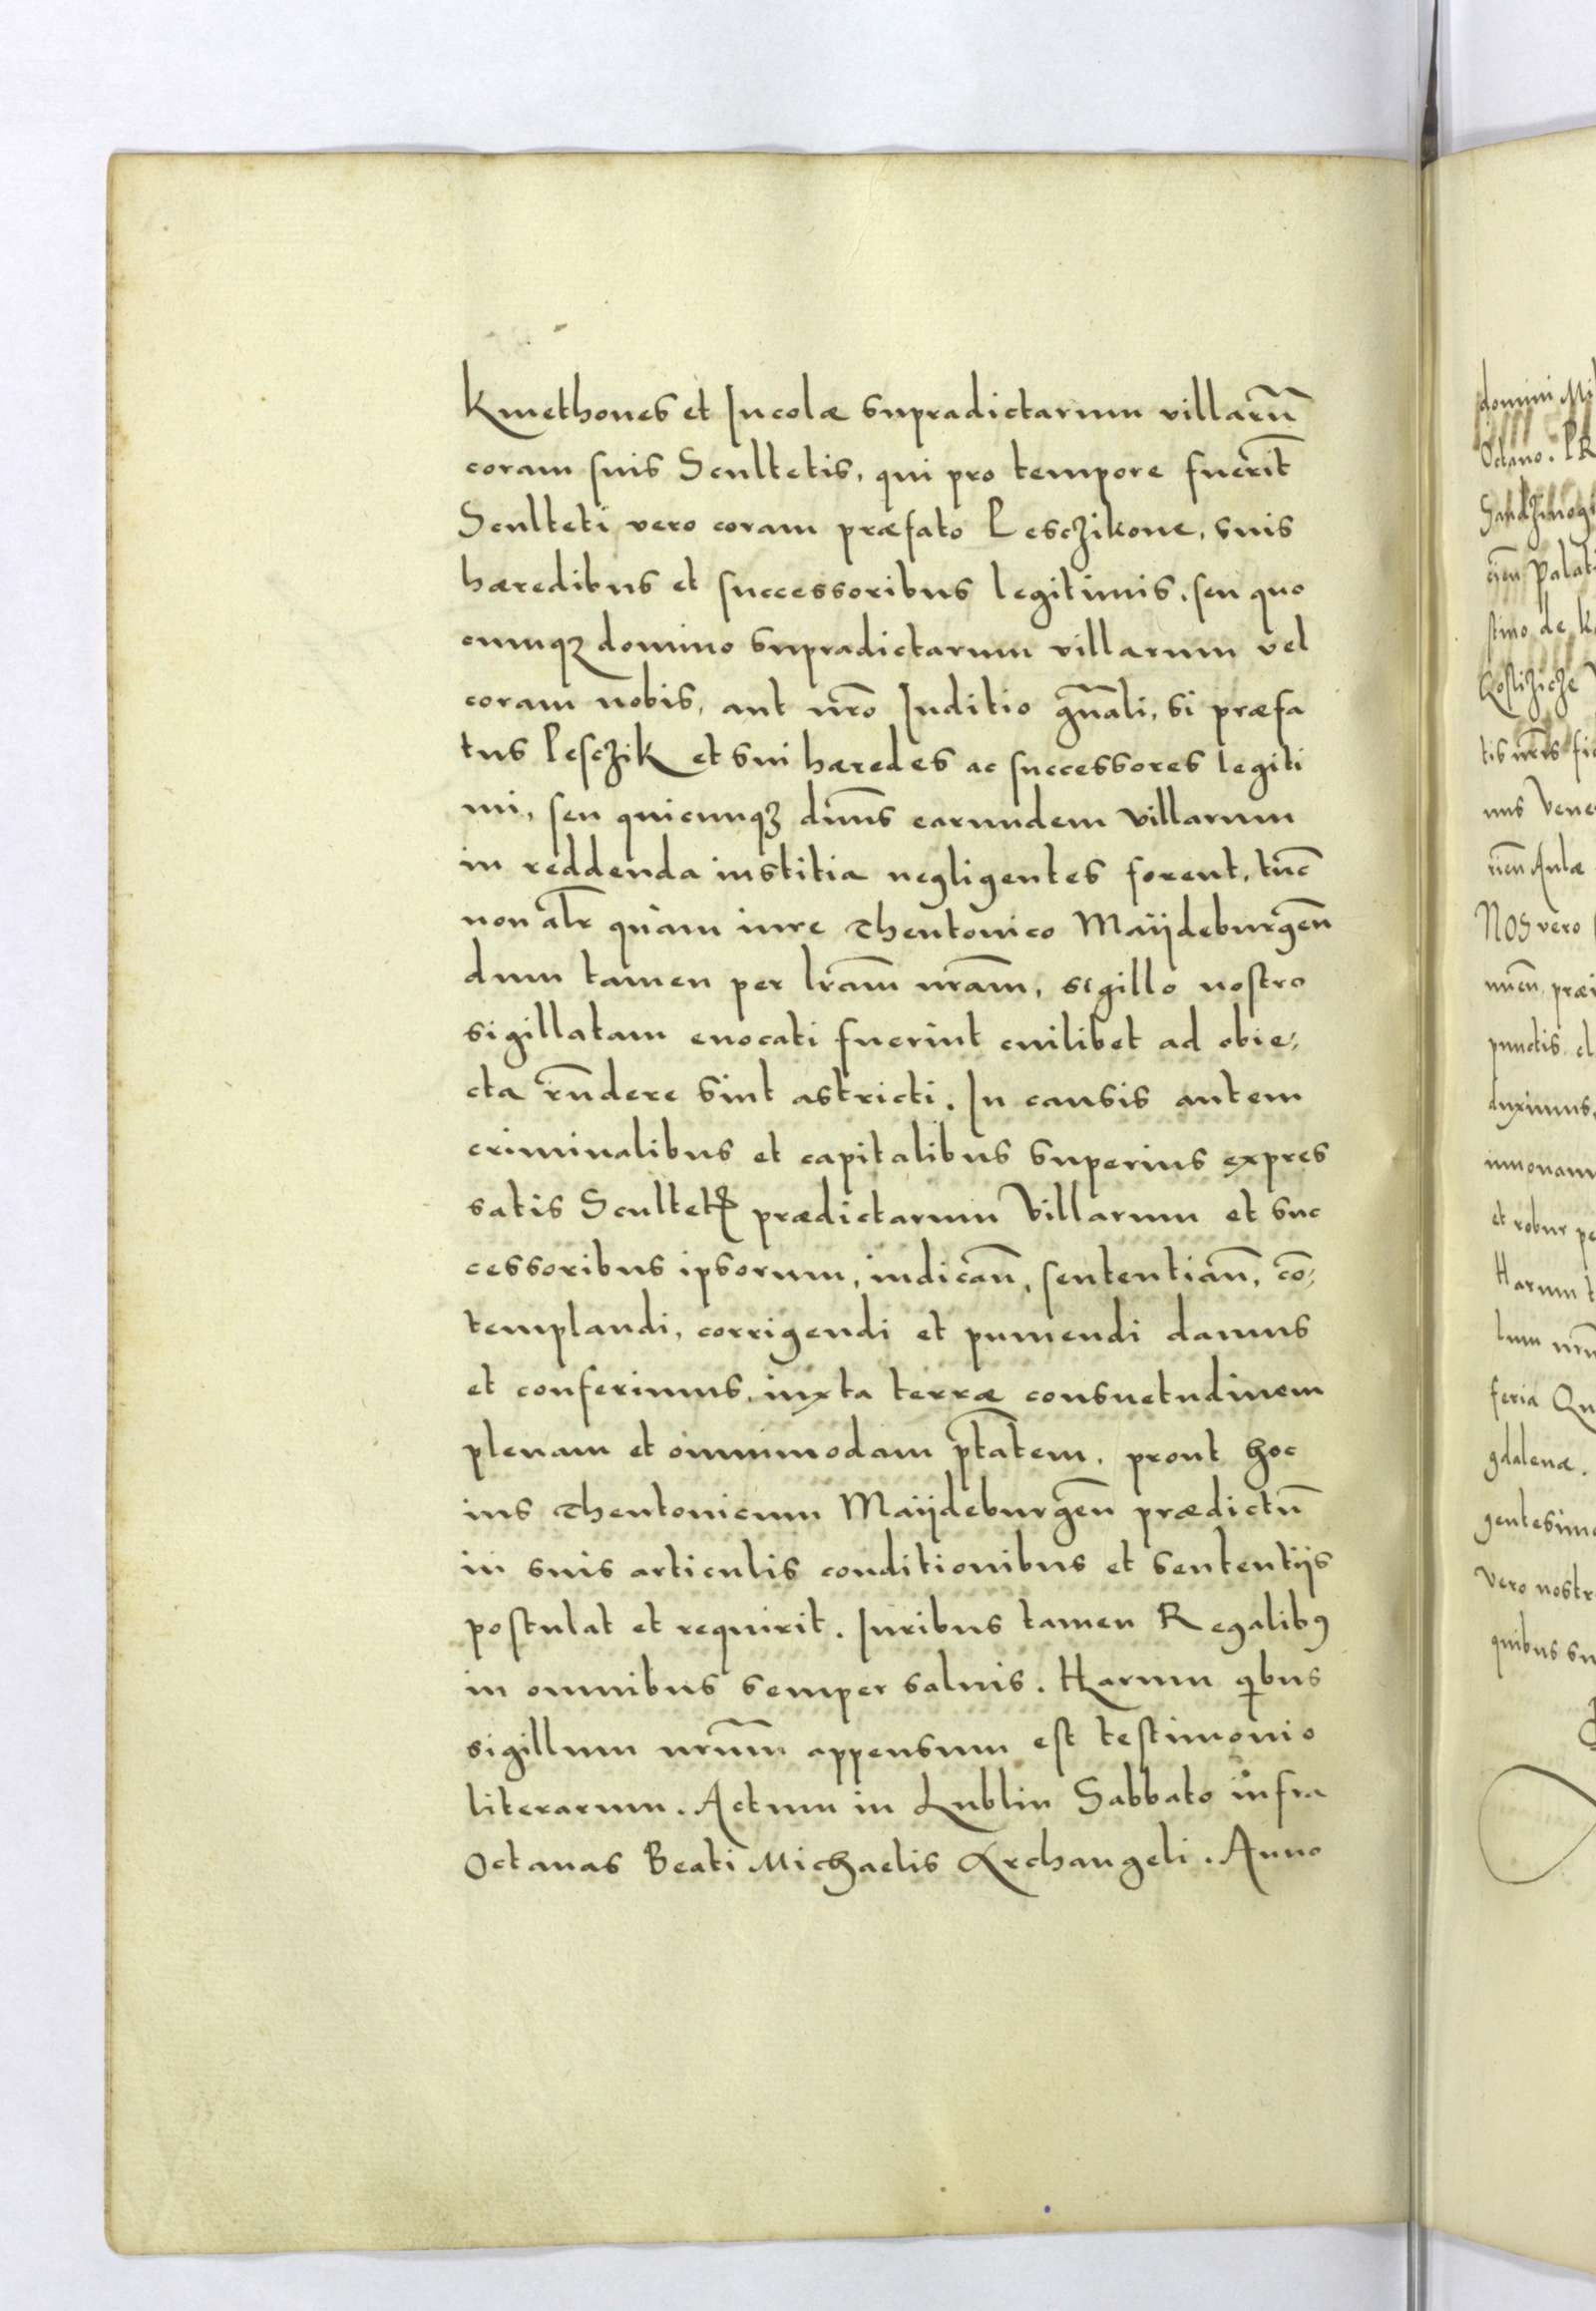 Kmethones et Incolæ supradictarum villarū
coram suis Scultetis, qui pro tempore fuerīt
Sculteti vero coram præfato Lesczikone, suis
hæredibus et successoribus legitimis, seu quo
cumqꝫ domino supradictarum villarum vel
coram nobis, aut nr̄o Iuditio gn̄ali, si præfa
tus Lesczik et sui hæredes ac successores legiti
mi, seu quicunqꝫ dn̄us earundem villarum
in reddenda iustitia negligentes forent, tūc
non alr̄ quàm iure Theutonico Maÿdeburgeñ
dum tamen per lr̄am nr̄am, sigillo nostro
sigillatam euocati fuerint cuilibet ad obie-
cta rn̄dere sint astricti. In causis autem
criminalibus et capitalibus superius expres
satis Scultetꝭ prædictarum Villarum et suc
cessoribus ipsorum, iudicañ, sententiañ, cō-
templandi, corrigendi et puniendi damus
et conferimus, iuxta terræ consuetudinem
plenam et omnimodam ptātem, prout hoc
ius Theutonicum Maÿdeburgeñ prædictū
in suis articulis conditionibus et sententijs
postulat et requirit. Iuribus tamen Regalibꝰ
in omnibus semper saluis. Harum qibus
sigillum nr̄um appensum est testimonio
literarum. Actum in Lublin Sabbato infra
Octauas Beati Michaelis Archangeli. Anno
domini Mi
Octauo. PR
Sandzimog
cień Palat
stino de K
Kostizicze
tis nr̄is fi
nus Vene
cień Aulæ
NOS vero
puctis
duximus
et robur pe
Harum t
feria Qu
gdalenæ.
gentesimo
Vero nostr
quibus su